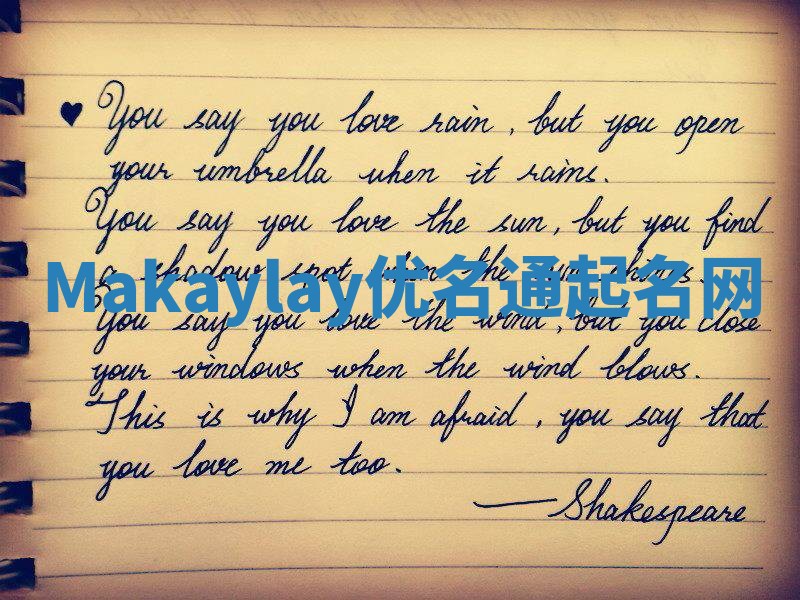 ♥ You say you love rain, but you open
your umbrella when it rains.
You say you love the sun, but you find
a shadow spot when the sun shines.
Makaylay优名通起名网
You say you love the wind, but you close
your windows when the wind blows.
This is why I am afraid, you say that
you love me too.
—Shakespeare